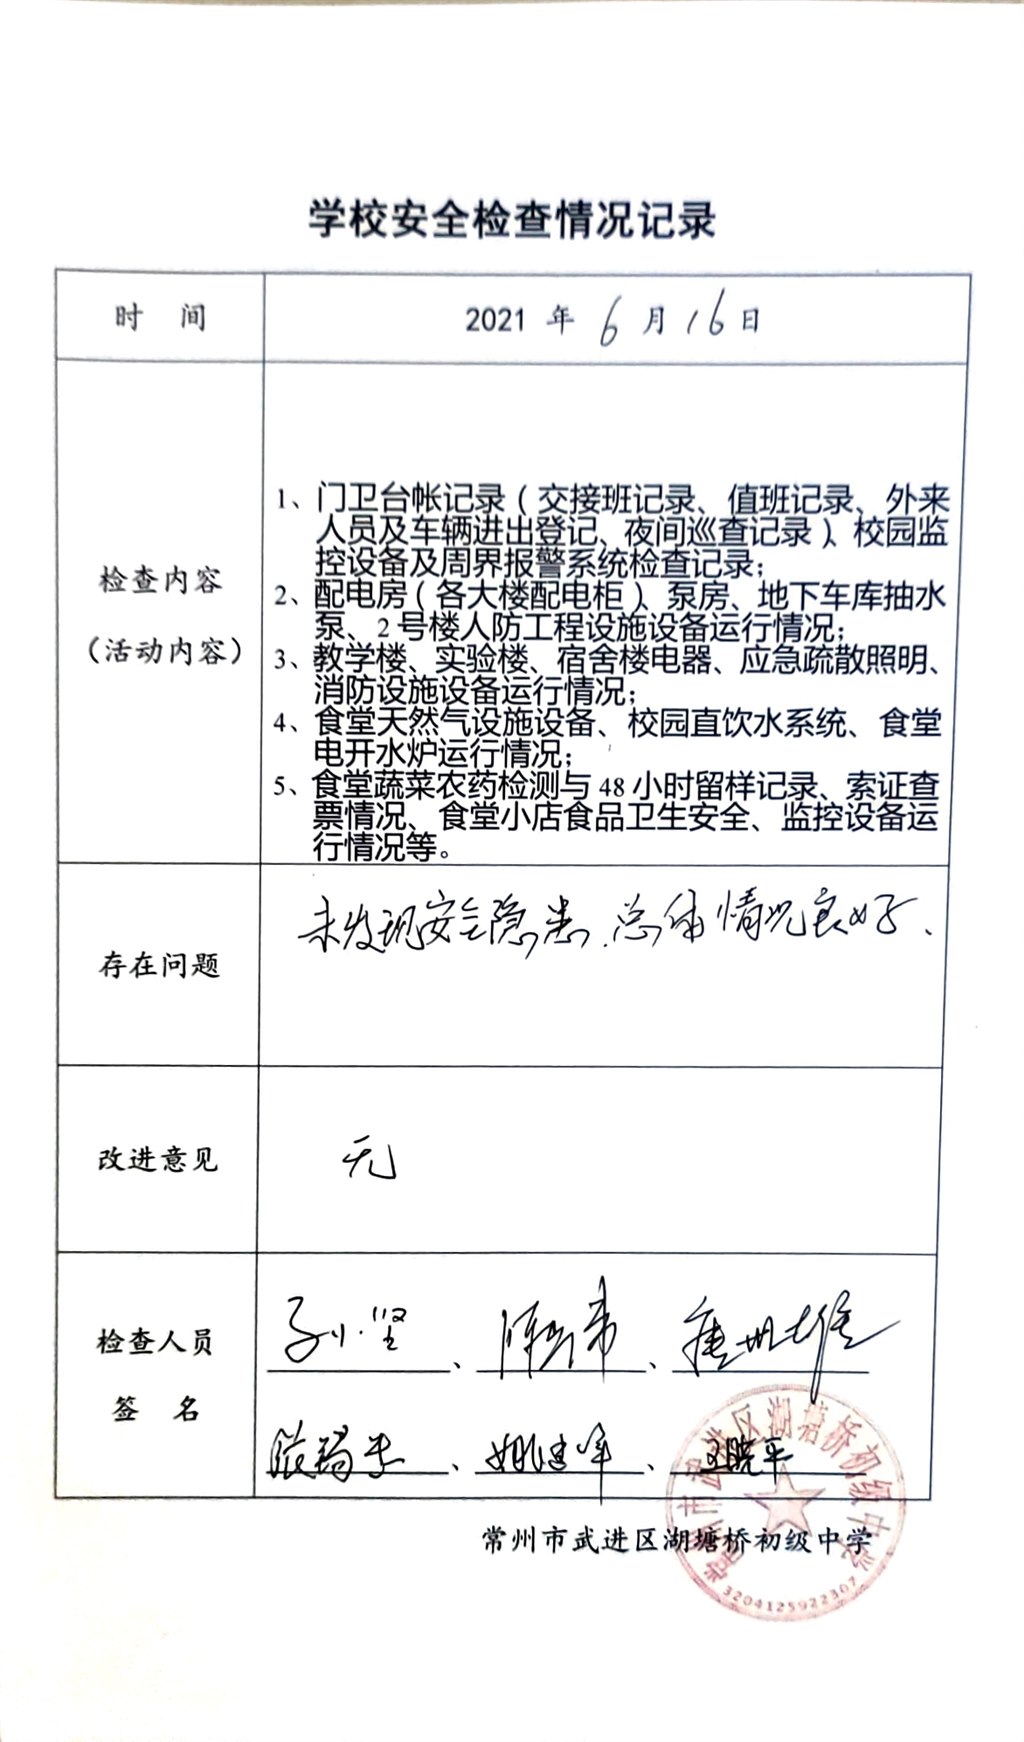 学校安全检查情况记录
时 间
2021 年 6 月 16 日
检查内容
（活动内容）
1、门卫台帐记录（交接班记录、值班记录、外来
人员及车辆进出登记、夜间巡查记录）、校园监
控设备及周界报警系统检查记录；
2、配电房（各大楼配电柜）、泵房、地下车库抽水
泵、2 号楼人防工程设施设备运行情况；
3、教学楼、实验楼、宿舍楼电器、应急疏散照明、
消防设施设备运行情况；
4、食堂天然气设施设备、校园直饮水系统、食堂
电开水炉运行情况；
5、食堂蔬菜农药检测与 48 小时留样记录、索证查
票情况、食堂小店食品卫生安全、监控设备运
行情况等。
存在问题
未发现安全隐患.总体情况良好.
改进意见
无
检查人员
签 名
、 、
、姚建军、王晓平
常州市武进区湖塘桥初级中学
常州市武进区湖塘桥初级中学
3204125922307